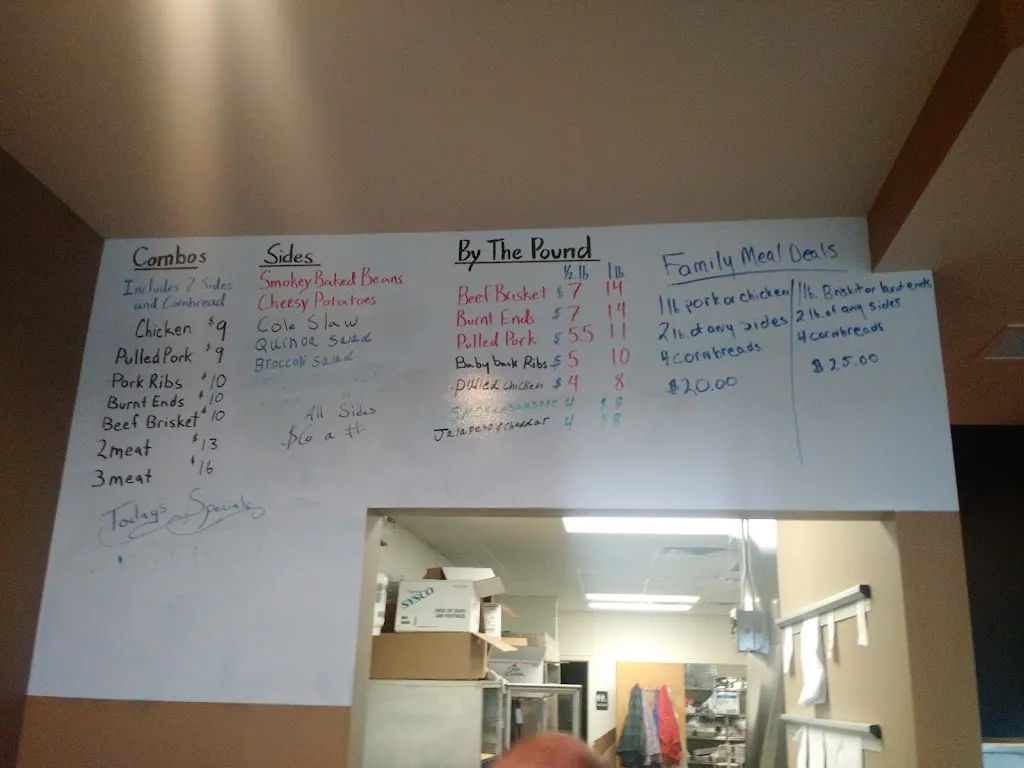 Combos
Includes 2 Sides
and Cornbread
Chicken $9
Pulled Pork $9
Pork Ribs $10
Burnt Ends $10
Beef Brisket $10
2meat $13
3meat $16
Today's Specials
Sides
Smokey Baked Beans
Cheesy Potatoes
Cole Slaw
Quinoa Salad
Broccoli Salad
All Sides
$6 a #
By The Pound
1/2 lb 1 lb
Beef Brisket $7 14
Burnt Ends $7 14
Pulled Pork $5.5 11
Baby back Ribs $5 10
Pulled Chicken $4 8
4 $8
Jalapeno & Cheddar 4 $8
Family Meal Deals
1 lb pork or chicken
2 lb. of any sides
4 cornbreads
$20.00
1 lb. Brisket or burnt ends
2 lb. of any sides
4 cornbreads
$25.00
SYSCO